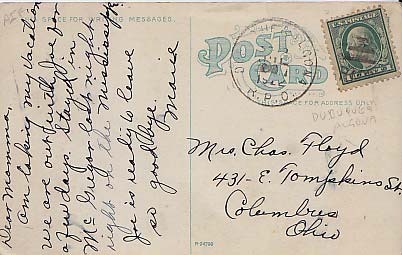 SPACE FOR WRITING MESSAGES
Dear Mamma,
Am taking my vacation
we are out further here for
a few days. Stayed in
Mc Gregor last night
right on the Mississippi
Joe is ready to leave
so goodbye.
Marie
POST
CARD
R.P.O.
SPACE FOR ADDRESS ONLY.
DUBUQUE &
ALGONA
Mrs. Chas. Floyd
431-E. Tompkins St.
Columbus
Ohio
R-24790